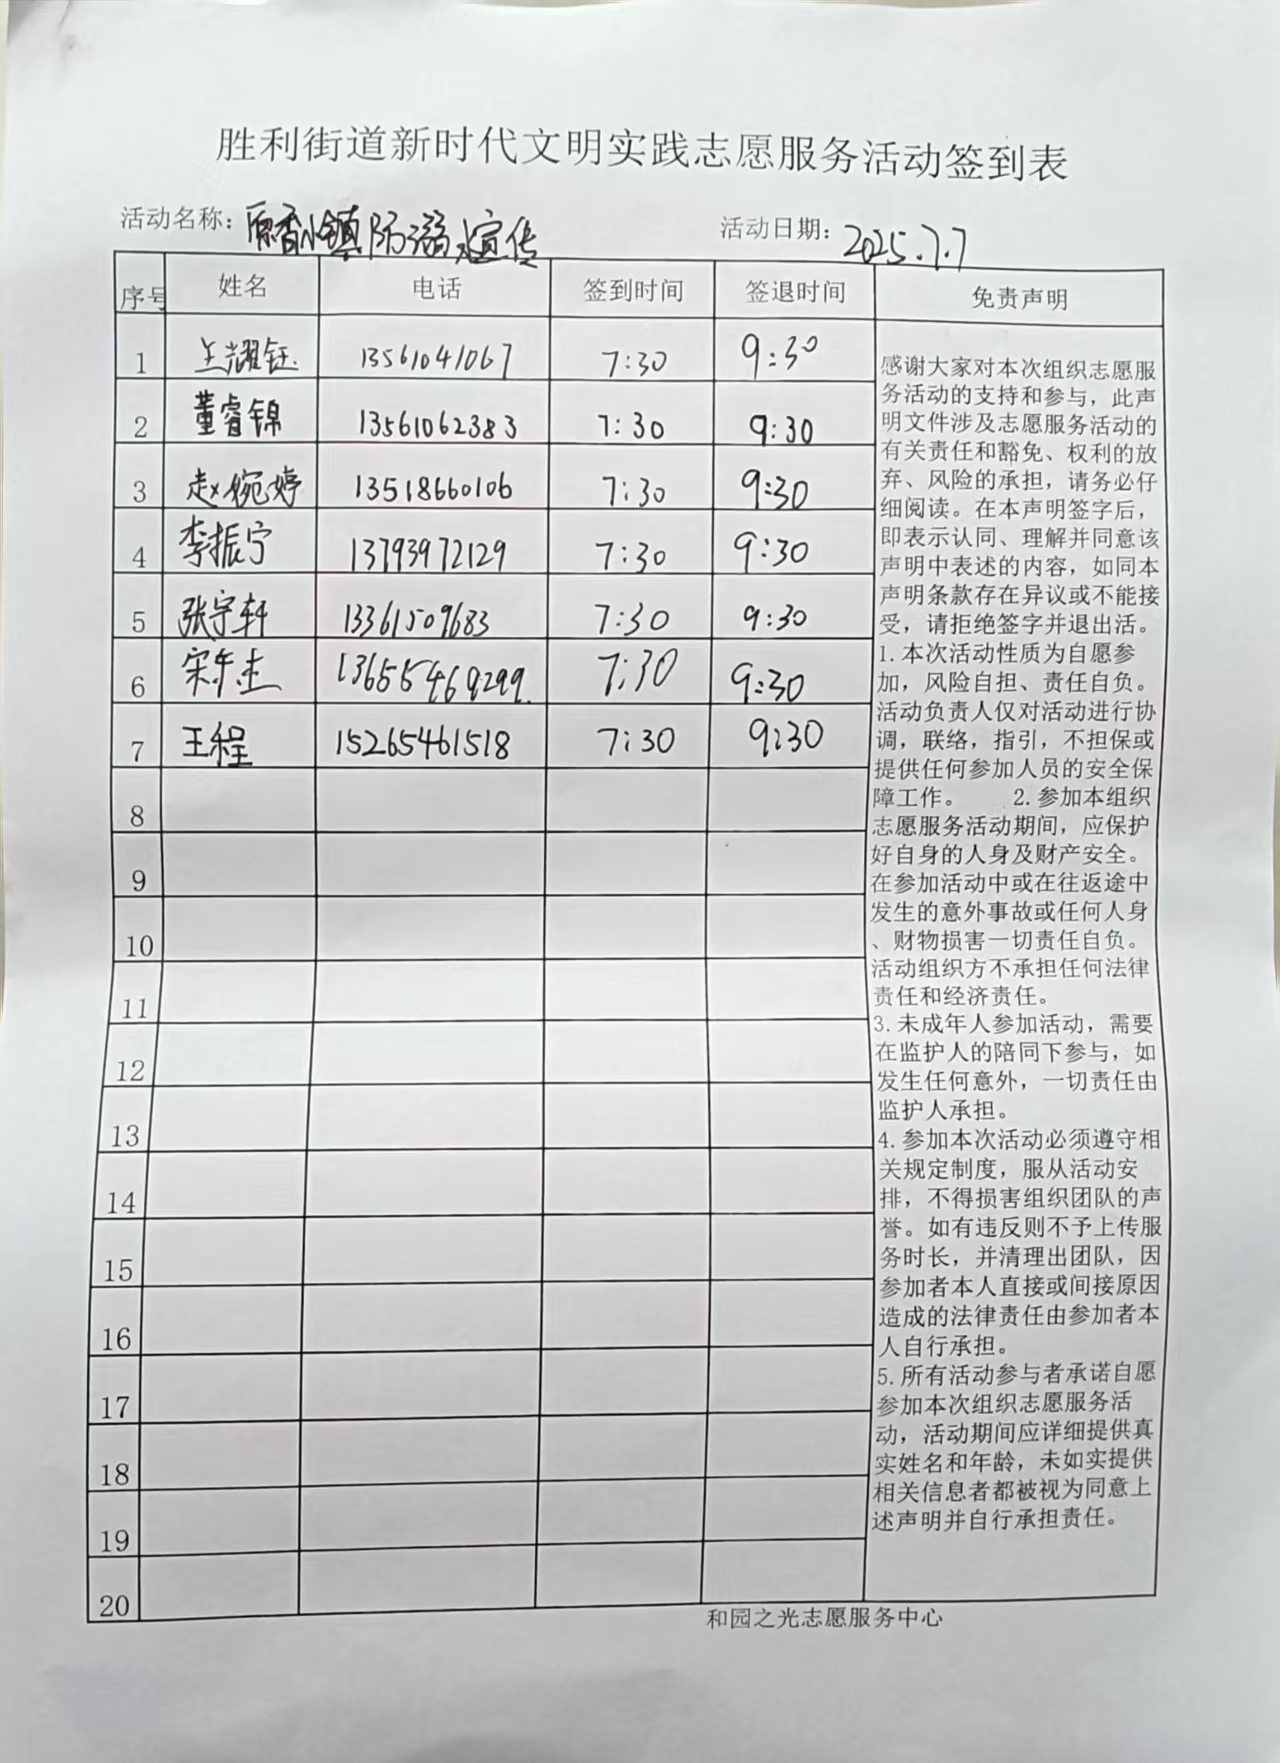 胜利街道新时代文明实践志愿服务活动签到表
活动名称：原香小镇防溺水宣传 活动日期：2025.7.7
序号 姓名 电话 签到时间 签退时间 免责声明
1 王耀钰 13561041067 7:30 9:30
2 董睿锦 13561062383 7:30 9:30
3 赵婉婷 13518660106 7:30 9:30
4 李振宁 13793972129 7:30 9:30
5 张宇轩 13361509683 7:30 9:30
6 7:30 9:30
7 王程 15265461518 7:30 9:30
8
9
10
11
12
13
14
15
16
17
18
19
20
感谢大家对本次组织志愿服
务活动的支持和参与，此声
明文件涉及志愿服务活动的
有关责任和豁免、权利的放
弃、风险的承担，请务必仔
细阅读。在本声明签字后，
即表示认同、理解并同意该
声明中表述的内容，如同本
声明条款存在异议或不能接
受，请拒绝签字并退出活。
1.本次活动性质为自愿参
加，风险自担、责任自负。
活动负责人仅对活动进行协
调，联络，指引，不担保或
提供任何参加人员的安全保
障工作。 2.参加本组织
志愿服务活动期间，应保护
好自身的人身及财产安全。
在参加活动中或在往返途中
发生的意外事故或任何人身
、财物损害一切责任自负。
活动组织方不承担任何法律
责任和经济责任。
3.未成年人参加活动，需要
在监护人的陪同下参与，如
发生任何意外，一切责任由
监护人承担。
4.参加本次活动必须遵守相
关规定制度，服从活动安
排，不得损害组织团队的声
誉。如有违反则不予上传服
务时长，并清理出团队，因
参加者本人直接或间接原因
造成的法律责任由参加者本
人自行承担。
5.所有活动参与者承诺自愿
参加本次组织志愿服务活
动，活动期间应详细提供真
实姓名和年龄，未如实提供
相关信息者都被视为同意上
述声明并自行承担责任。
和园之光志愿服务中心